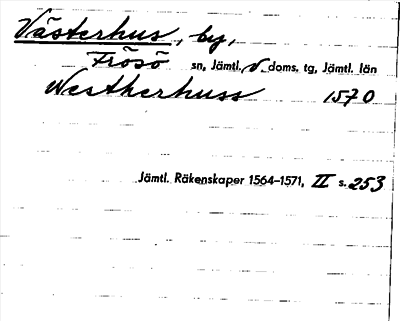 Västerhus, by,
Frösö sn, Jämtl., V. doms. tg, Jämtl. län
Westherhuss 1570
Jämtl. Räkenskaper 1564–1571, II s. 253